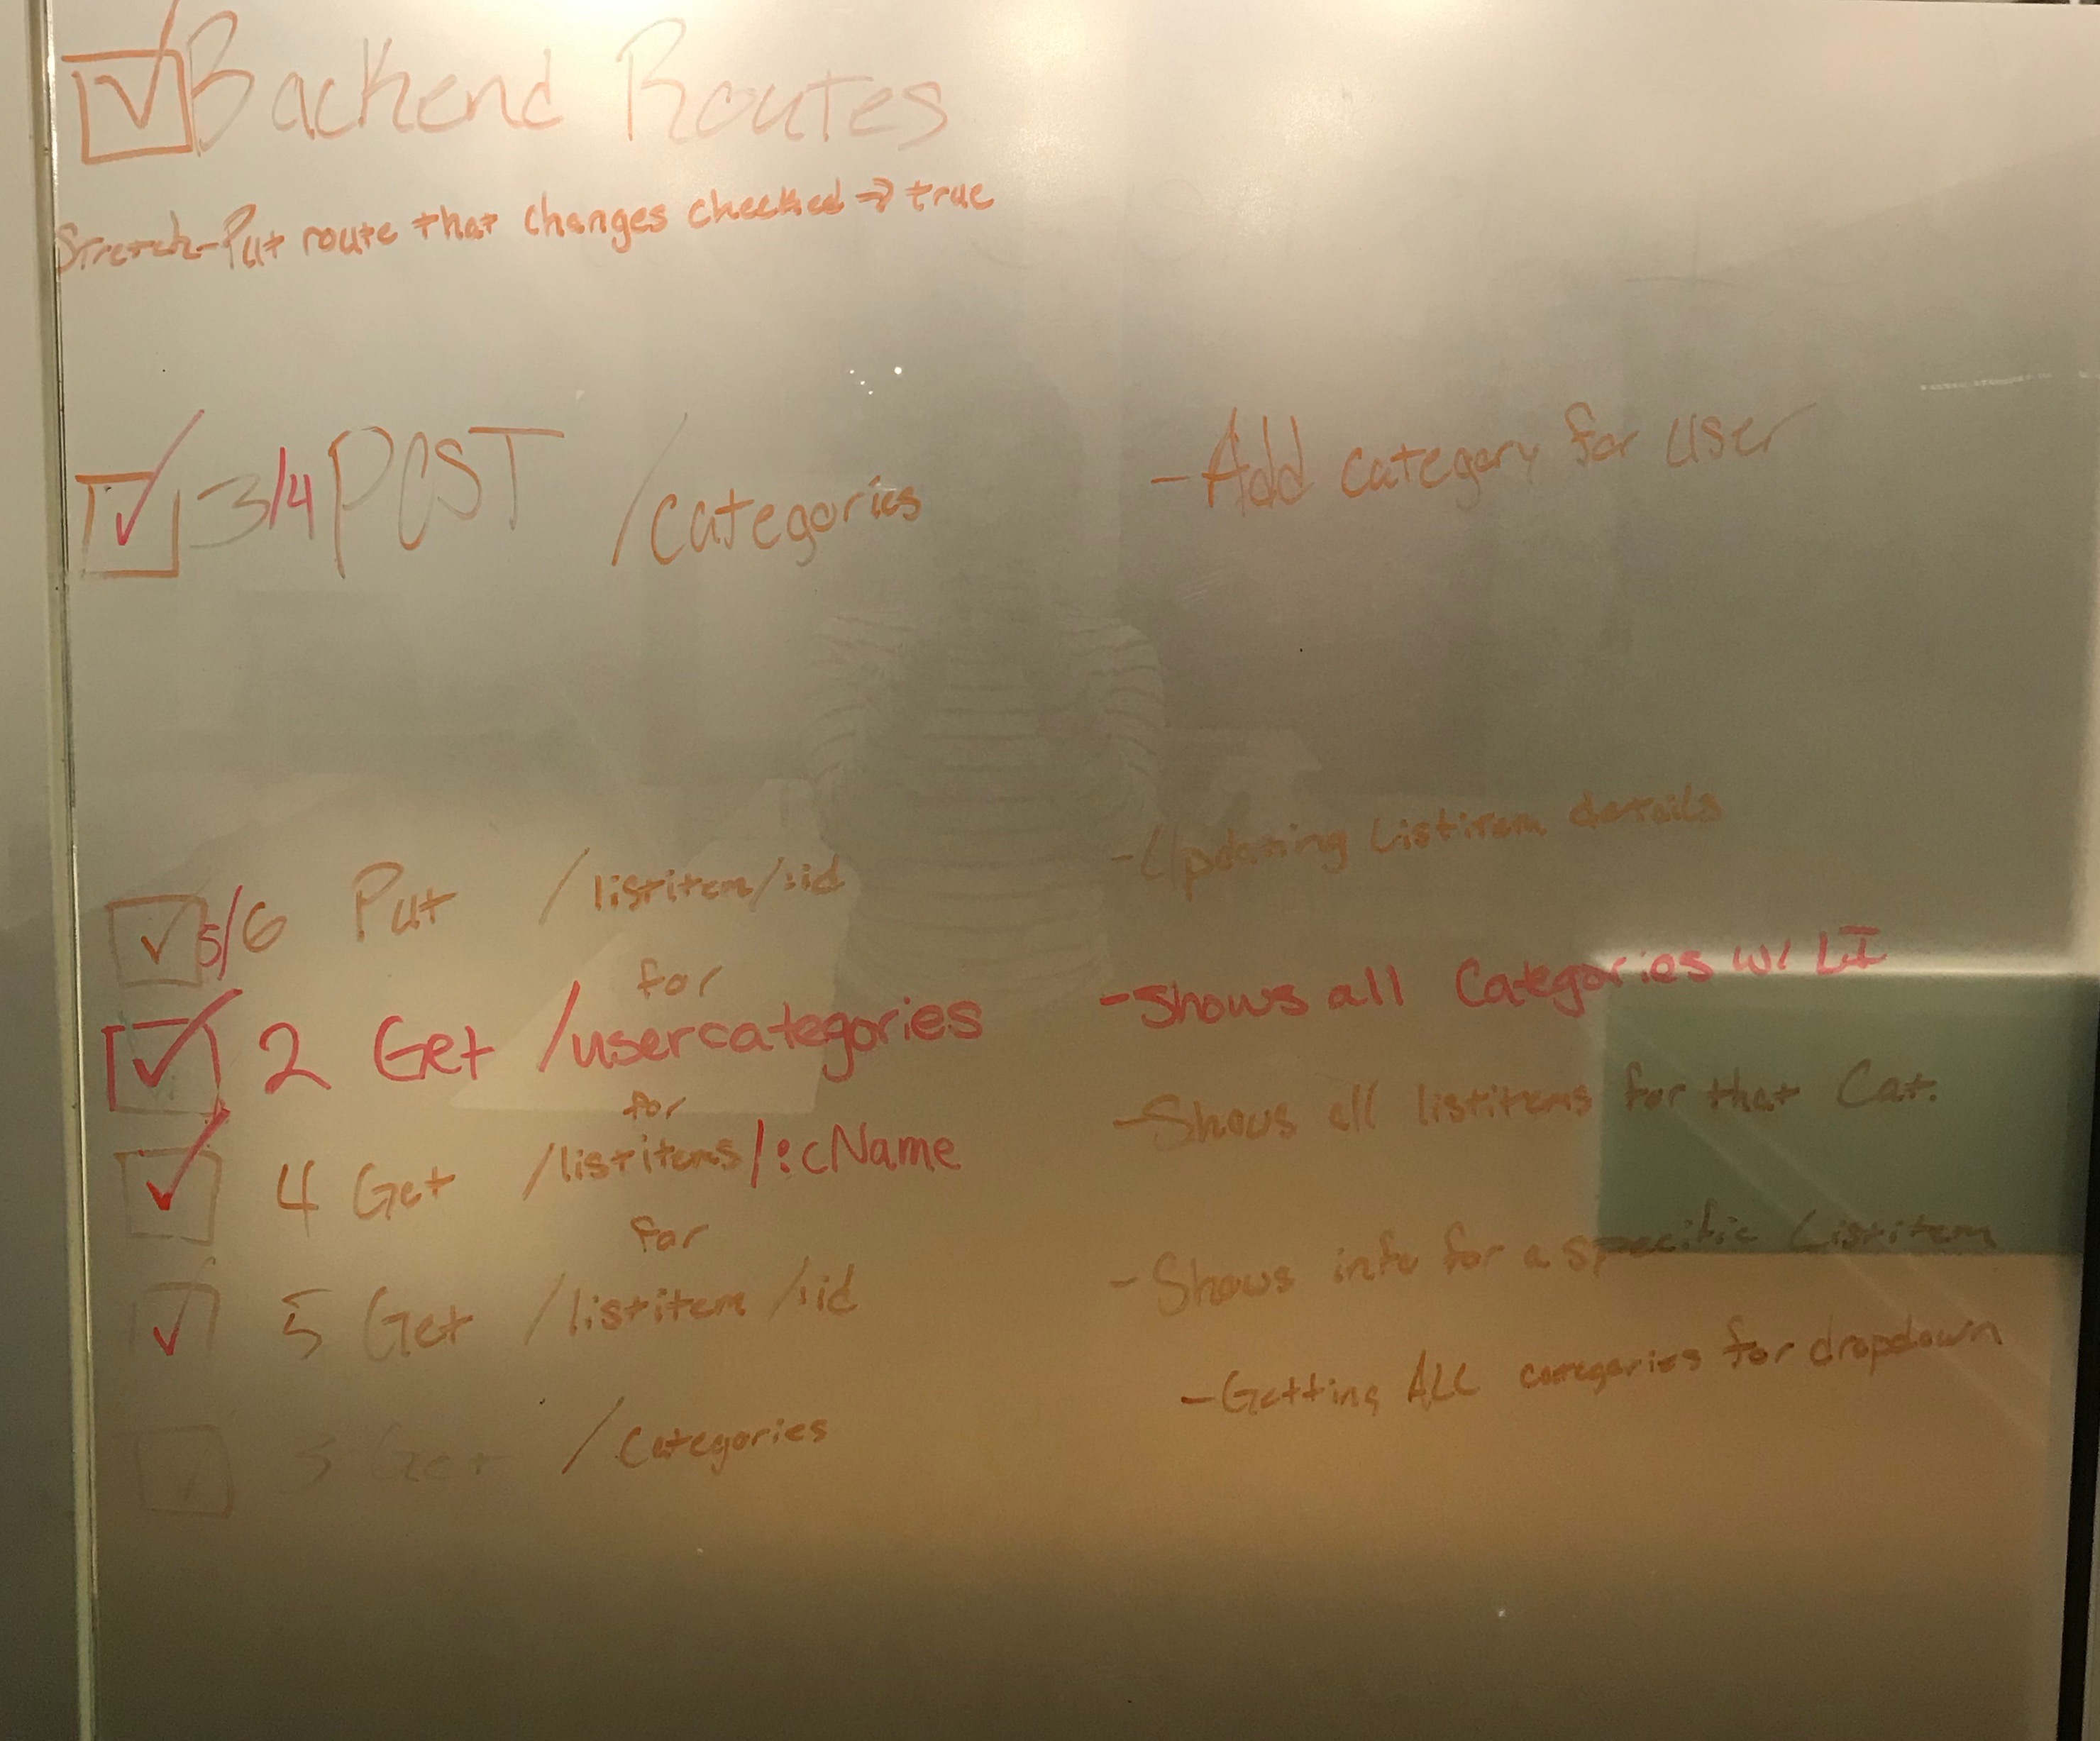 Backend Routes
Stretch-Put route that changes checked → true
3/4 POST /categories - Add category for user
5/6 Put /listitem/:id - Updating Listitem details
for
2 Get /usercategories - Shows all Categories w/ LI
for
4 Get /listitems/:cName - Shows all listitems for that Cat.
for
5 Get /listitem/:id - Shows info for a specific Listitem
3 Get /Categories - Getting ALL categories for dropdown